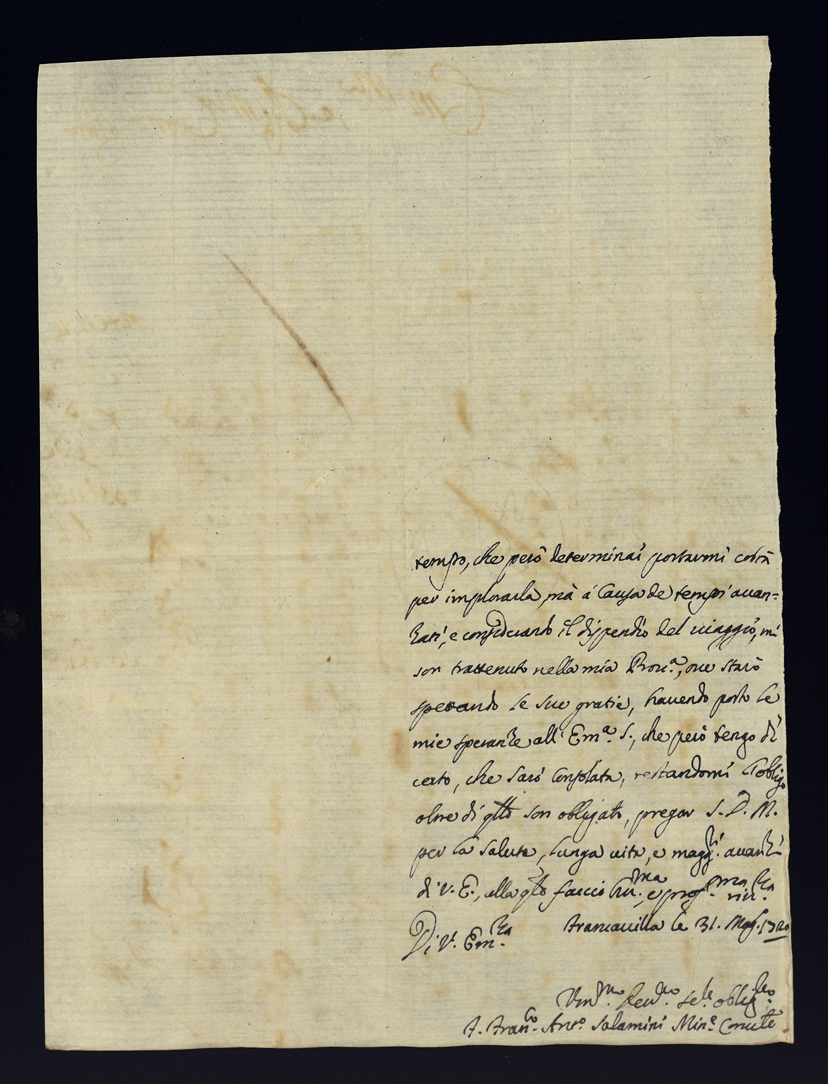 tempo, che però determinai portarmi costà
per implorarla, mà à Causa de tempi avan-
zati, e considerando il dispendio del viaggio, mi
son trattenuto nella mia Prov.ª, ove starò
spettando le sue gratie, havendo posto le
mie speranze all' Em.ª S., che però tengo di
certo, che sarò Consolato, restandomi l'obligo
oltre di qllo son obligato, pregar S. D. M.
per la salute, lunga vita, e magg.ri avanzi
di V. E., alla qle faccio hu.ma, e prof.ma riv.za
Di V. Em.za Francavilla le 31. Mag. 1720
Um.mo Dev.mo Se.re oblig.mo
F. Fran.co Ant.º Salamini Min.e Conv.le